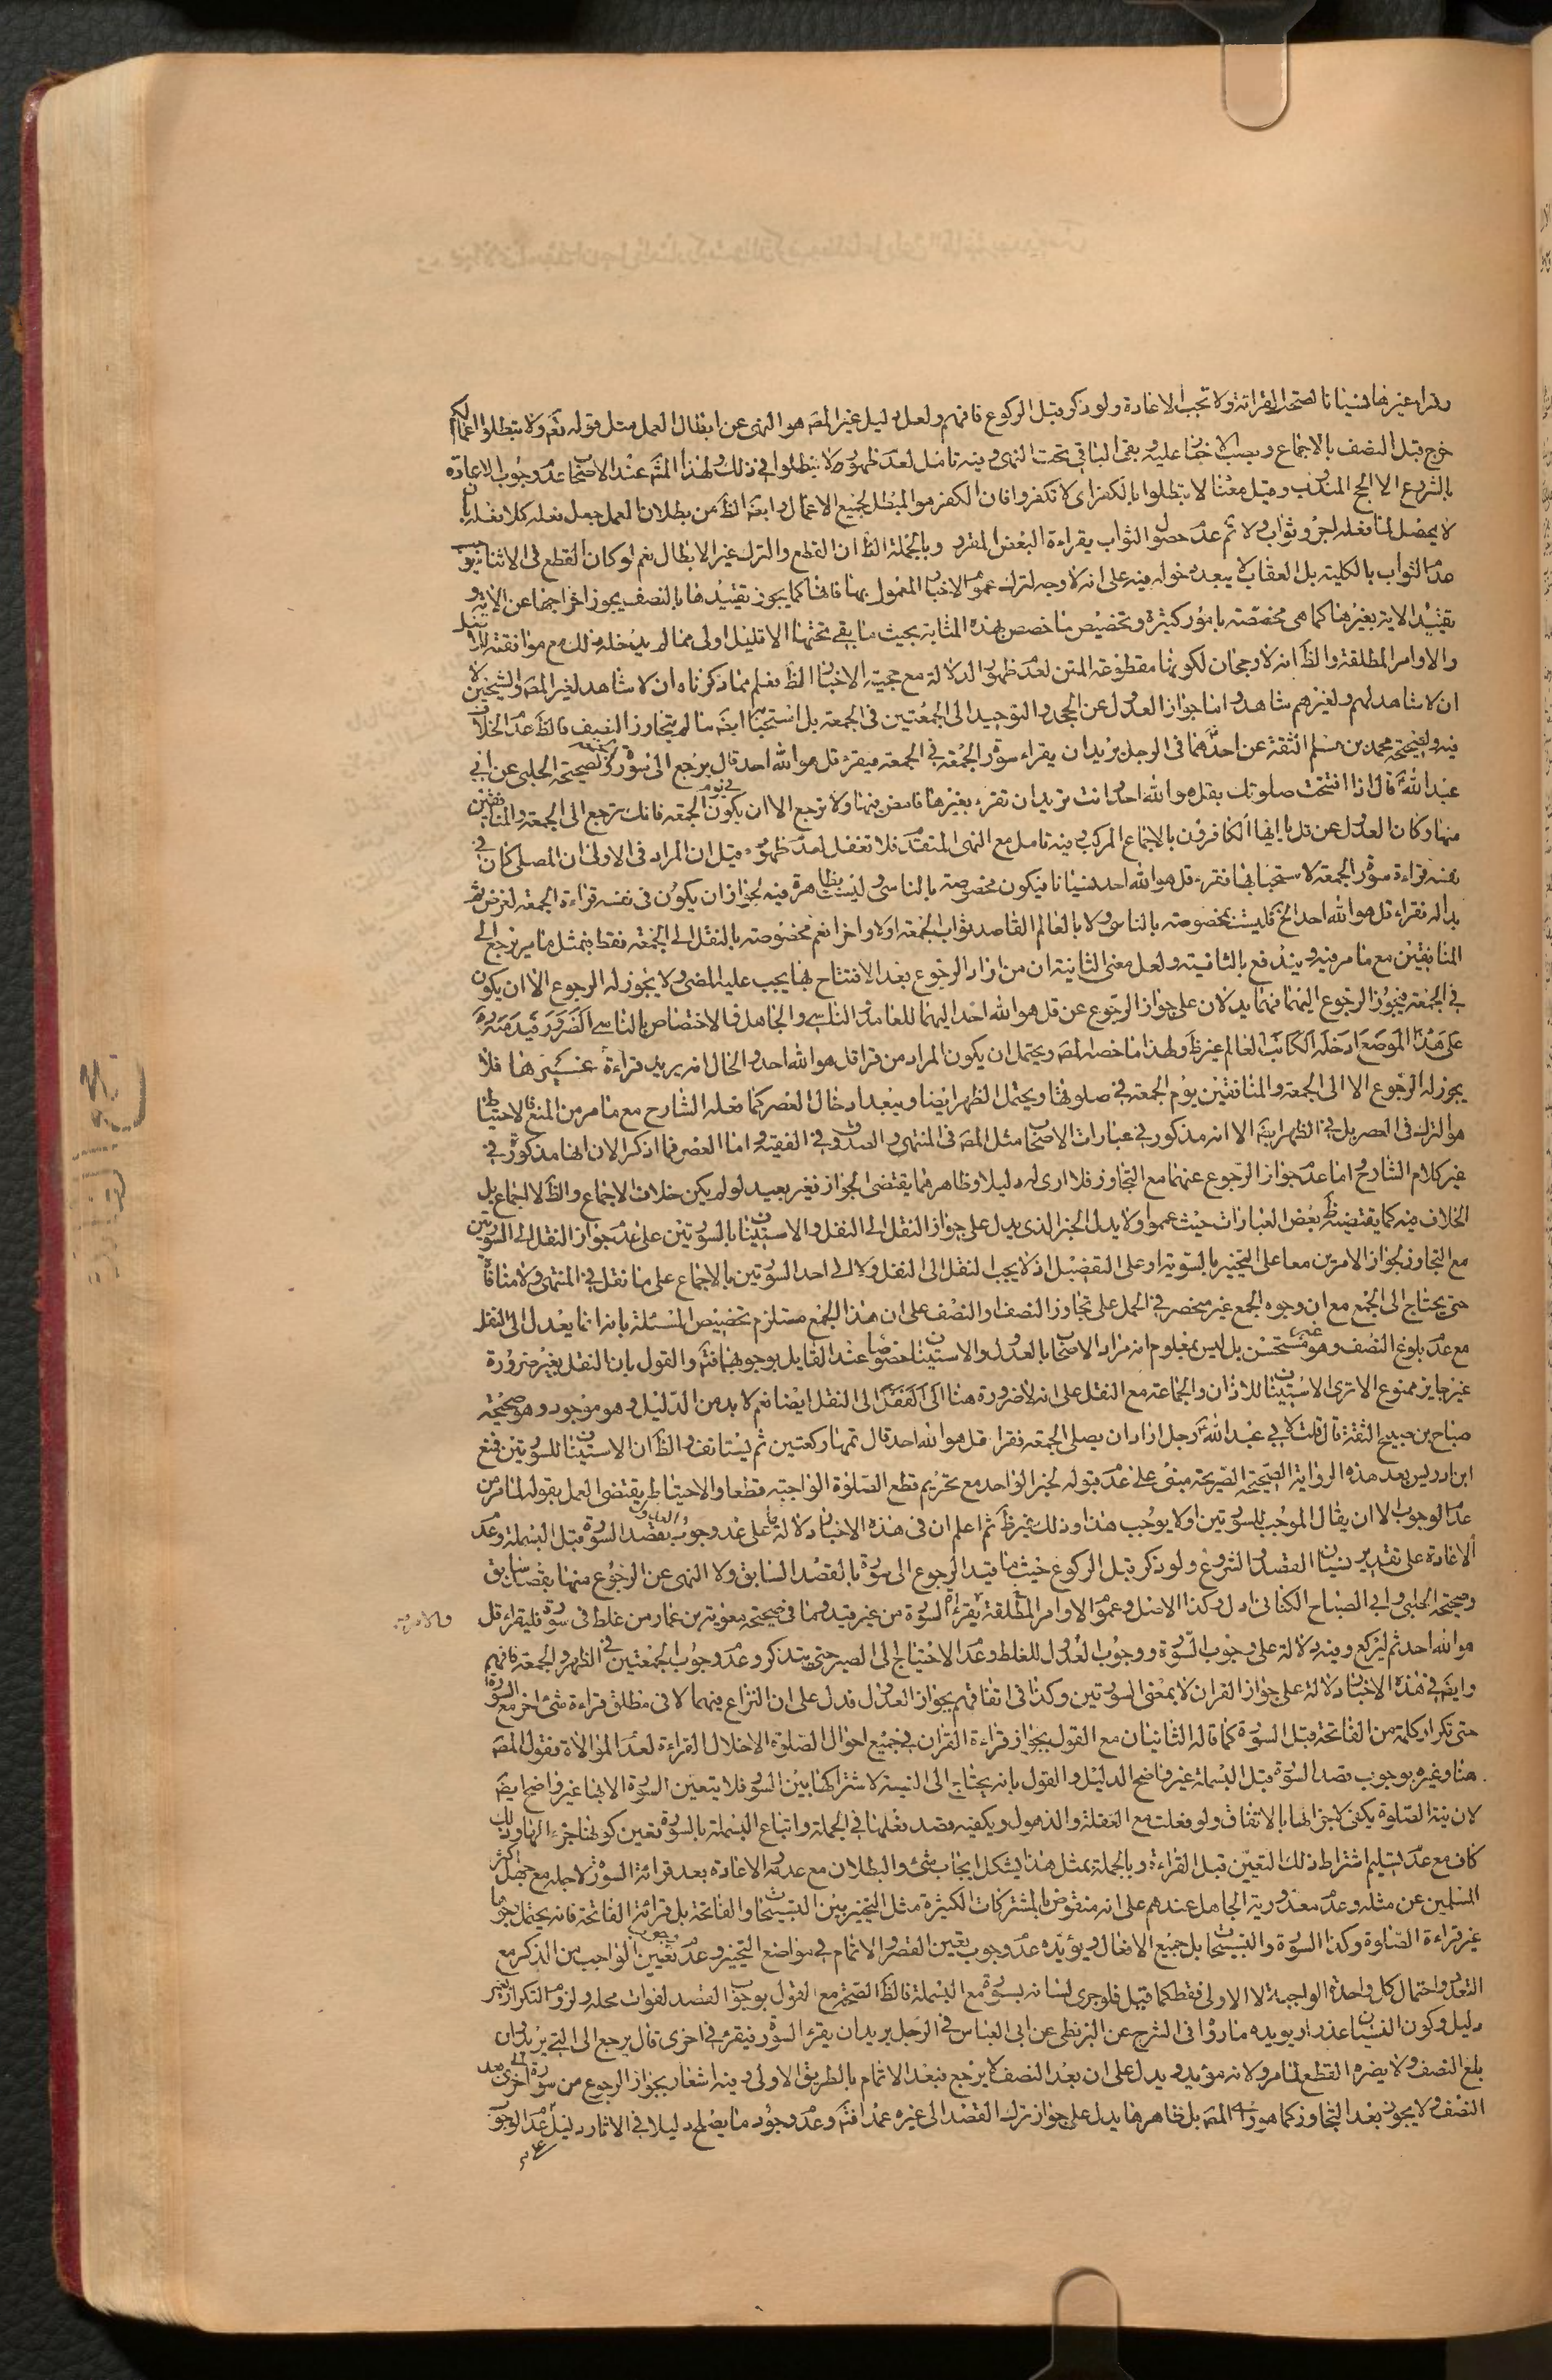 وقراء غيرها نسيانا لصحة القراءة ولا تجب الاعادة ولو ذكر قبل الركوع فافهم ولعل دليل غير المصـ هو النهى عن ابطال العمل مثل قوله تعـ ولا تبطلوا اعمالكم
خرج قبل النصف بالاجماع وبعض الاخبار عليه وبقى الباقي تحت النهى وفيه تامل لعدم ظهور ولا تبطلوا في ذلك ولهذا المشـ عند الاصحاب عدم وجوب الاعادة
بالشروع الا الحج المندوب وقيل معنا لا تبطلوا بالكفر اى لا تكفروا فان الكفر هو المبطل لجميع الاعمال وايضـ الظـ من بطلان العمل جعل فعله كلا فعله بان
لا يحصل لما فعله اجر وثواب ولا ثم عدم حصول الثواب بقراءة البعض المفرد وبالجملة الظـ ان القطع والترك غير الابطال نعم لو كان القطع في الاثناء يوجب
عدم الثواب بالكلية بل العقاب لا يبعد دخوله فيه على انه لا وجه لترك عموم الاخبار المعمول بها فانها كما يجوز تقييدها بالنصف يجوز اخراجها عن الاية و
تقييد الاية بغيرها كما هي مخصصة بامور كثيرة وتخصيص ما خصص بهذه المثابة بحيث ما بقي تحتها الا قليل اولى مما لم يدخله ذلك مع موافقته للاصل
والاوامر المطلقة والظـ انه لا رجحان لكونها مقطوعة المتن لعدم ظهور الدلالة مع حجية الاخبار الظـ فعلم مما ذكرناه ان لا شاهد لغير المصـ والشيخين لا
ان لا شاهد لهم ولغيرهم شاهد واما جواز العدول عن الجحد والتوحيد الى الجمعتين في الجمعة بل استحبابه ايضـ ما لم يتجاوز النصف فالظـ عدم الخلاف
فيه ولصحيحة محمد بن مسلم الثقة عن احدهما في الرجل يريد ان يقراء سورة الجمعة في الجمعة فيقرء قل هو الله احد قال يرجع الى سورة الجمعة وصحيحة الحلبي عن ابي
عبد الله قال اذا افتتحت صلوتك بقل هو الله احد وانت تريد ان تقرء بغيرها فامض فيها ولا ترجع الا ان يكون في يوم الجمعة فانك ترجع الى الجمعة والمنافقين
منها وكان العدول عن قل يا ايها الكافرون بالاجماع المركب وفيه تامل مع النهى المتقدم فلا تغفل لعدم ظهور وقيل ان المراد في الاولى ان المصلى كان في
نفسه قراءة سورة الجمعة لاستحبابها فقرء قل هو الله احد نسيانا فيكون مخصوصة بالناسى وليست بظاهرة فيه لجواز ان يكون في نفسه قراءة الجمعة لغرض ثم
بدا له فقراء قل هو الله احد الخ فليست بمخصوصة بالناسي ولا بالعالم القاصد ثواب الجمعة اولا واخرا نعم مخصوصة بالنقل الى الجمعة فقط فبمثل ما مر يرجع الى
المنافقين مع ما مر فيه ويندفع بالثانية ولعل معنى الثانية ان من اراد الرجوع بعد الافتتاح بها يجب عليه المضى ولا يجوز له الرجوع الا ان يكون
في الجمعة فيجوز الرجوع اليهما فهما يدلان على جواز الرجوع عن قل هو الله احد اليهما للعامد والناسي والجاهل فالاختصاص بالناسي
على هذا الموضع ادخله الكاتب العالم غير ظـ ولهذا ما خصه المصـ ويحتمل ان يكون المراد من قرا قل هو الله احد والحال انه يريد قراءة غيرها فلا
يجوز له الرجوع الا الى الجمعة والمنافقين يوم الجمعة في صلوتها ويحتمل الظهر ايضا ويبعد ادخال العصر كما فعله الشارح مع ما مر من المنع فالاحتياط
هو الترك في العصر بل في الظهر ايضـ الا انه مذكور في عبارات الاصحاب مثل المصـ في المنتهى والصدوق في الفقيه واما العصر فما اذكر الان انها مذكورة في
غير كلام الشارح اما عدم جواز الرجوع عنهما مع التجاوز فلا ارى له دليلا وظاهرهما يقتضى الجواز فغير بعيد لو لم يكن خلاف الاجماع والظـ لا اجماع بل
الخلاف فيه كما يقتضيه ظـ بعض العبارات حيث عموا ولا يدل الخبر الذى يدل على جواز النقل الى النفل والاستيناف بالسورتين على عدم جواز النقل الى السورتين
مع التجاوز لجواز الامرين معا على التخيير بالسوية او على التفضيل اذ لا يجب النقل الى النفل ولا الى احد السورتين بالاجماع على ما نقل في المنتهى ولا منافاة
حتى يحتاج الى الجمع مع ان وجوه الجمع غير منحصر في الحمل على تجاوز النصف او النصف على ان هذا الجمع مستلزم تخصيص المسئلة بانه انما يعدل الى النفل
مع عدم بلوغ النصف وهو غير مستحسن بل ليس بمعلوم انه مراد الاصحاب بالعدول والاستيناف خصوصا عند القايل بوجوبهما فتـ والقول بان النقل بغير ضرورة
غير جايز ممنوع الا ترى الاستيناف للاذان والجماعة مع النقل على انه لا ضرورة هنا الى النقل ايضا نعم لا بد من الدليل وهو موجود وهو صحيحة
صباح بن صبيح الثقة قال قلت لابي عبد الله رجل اراد ان يصلى الجمعة فقرا قل هو الله احد قال تمها ركعتين ثم يستانف والظـ ان الاستيناف للسورتين فمنع
ابن ادريس بعد هذه الرواية الصحيحة الصريحة مبنى على عدم قبوله لخبر الواحد مع تحريم قطع الصلوة الواجبة قطعا والاحتياط يقتضى العمل بقوله لما مر من
عدم الوجوب الا ان يقال الموجب للسورتين اولا يوجب هذا وذلك غير ظـ ثم اعلم ان في هذه الاخبار دلالة ما على عدم وجوب القصد السورة قبل البسملة وعدم
الاعادة على تقدير نسيان القصد والشروع ولو ذكر قبل الركوع حيث ما قيد الرجوع الى سورة بالقصد السابق ولا النهى عن الرجوع منها بقصد سابق
وصحيحة الحلبى وابي الصباح الكناني ادل وكذا الاصل وعموم الاوامر المطلقة بقراءة السورة من غير قيد وما في صحيحة معوية بن عمار من غلط في سورة فليقراء قل
هو الله احد ثم ليركع وفيه دلالة على وجوب السورة ووجوب العدول للغلط وعدم الاحتياج الى الصبر حتى يتذكر وعدم وجوب الجمعتين في الظهر والجمعة فافهم
وايضـ في هذه الاخبار دلالة على جواز القران لا بمعنى السورتين وكذا في اتفاقهم بجواز العدول فدل على ان النزاع فيهما لا في مطلق قراءة شئ اخر مع السورة
حتى تكرار كلمة من الفاتحة قبل السورة كما قاله الثانيان مع القول بجواز قراءة القران في جميع احوال الصلوة الا خلال القراءة لعدم الموالاة فقول المصـ
هنا وغيره بوجوب قصد السورة قبل البسملة غير واضح الدليل والقول بانه يحتاج الى النية لاشتراكها بين السور فلا يتعين السورة الا بها غير واضح ايضـ
لان نية الصلوة يكفى لاجزائها بالاتفاق ولو فعلت مع الغفلة والذهول ويكفيه قصد فعلها في الجملة واتباع البسملة بالسورة تعين كونها جزء لها وذلك
كاف مع عدم تسليم اشتراط ذلك التعيين قبل القراءة وبالجملة بمثل هذا يشكل ايجاب شئ والبطلان مع عدمه الاعادة بعد قراءة السورة لاجله مع جهل اكثر
المسلمين عن مثله وعدم معذورية الجاهل عندهم على انه منقوض بالمشتركات الكثيرة مثل التخيير بين التسبيحات والفاتحة بل قراءة الفاتحة فانه يحتمل وجوها
غير قراءة الصلوة وكذا السورة والتسبيحات بل جميع الافعال ويؤيده عدم وجوب تعيين القصر والاتمام في مواضع التخيير وعدم وجوب تعيين الواجب من الذكر مع
التعدد واحتمال كل واحدة الواجبة لا الاولى فقط كما قيل فلو جرى لسانه بسورة مع البسملة فالظـ الصحة مع القول بوجوب القصد لفوات محله ولزوم التكرار بغير
دليل وكون النسيان عذرا ويويده ما روى في الشرح عن البزنطى عن ابى العباس في الرجل يريد ان يقرء السورة فيقرء في اخرى قال يرجع الى التي يريد وان
بلغ النصف ولا يضره القطع لما مر ولانه مؤيد ويدل على ان بعد النصف لا يرجع فبعد الاتمام بالطريق الاولى وفيه اشعار بجواز الرجوع من سورة الى اخرى بعد
النصف ولا يجوز بعد التجاوز كما هو راى المصـ بل ظاهرها يدل على جواز ترك القصد الى غيره عمدا فتـ وعدم وجود ما يصلح دليلا في الاثار دليل عدم الوجوب